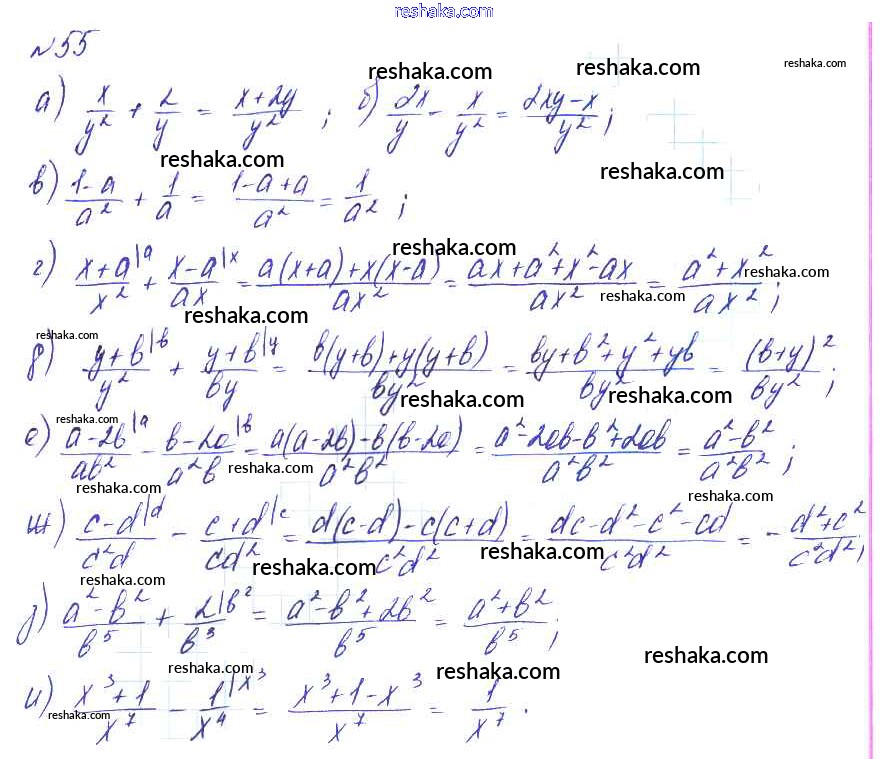 reshaka.com
№55
reshaka.com reshaka.com reshaka.com
а) x/y² + 2/y = (x+2y)/y² ; б) 2x/y - x/y² = (2xy-x)/y² ;
reshaka.com reshaka.com
в) (1-a)/a² + 1/a = (1-a+a)/a² = 1/a² ;
reshaka.com
г) (x+a)/x² |a + (x-a)/ax |x = (a(x+a)+x(x-a))/ax² = (ax+a²+x²-ax)/ax² = (a²+x²)/ax² ;
reshaka.com reshaka.com
reshaka.com reshaka.com
д) (y+b)/y² |b + (y+b)/by |y = (b(y+b)+y(y+b))/by² = (by+b²+y²+yb)/by² = (b+y)²/by² ;
reshaka.com reshaka.com
reshaka.com
е) (a-2b)/ab² |a - (b-2a)/a²b |b = (a(a-2b)-b(b-2a))/a²b² = (a²-2ab-b²+2ab)/a²b² = (a²-b²)/a²b² ;
reshaka.com reshaka.com
reshaka.com
ж) (c-d)/c²d |d - (c+d)/cd² |c = (d(c-d)-c(c+d))/c²d² = (dc-d²-c²-cd)/c²d² = - (d²+c²)/c²d² ;
reshaka.com reshaka.com
reshaka.com
з) (a²-b²)/b⁵ + 2/b³ |b² = (a²-b²+2b²)/b⁵ = (a²+b²)/b⁵ ;
reshaka.com reshaka.com reshaka.com
и) (x³+1)/x⁷ - 1/x⁴ |x³ = (x³+1-x³)/x⁷ = 1/x⁷ .
reshaka.com reshaka.com